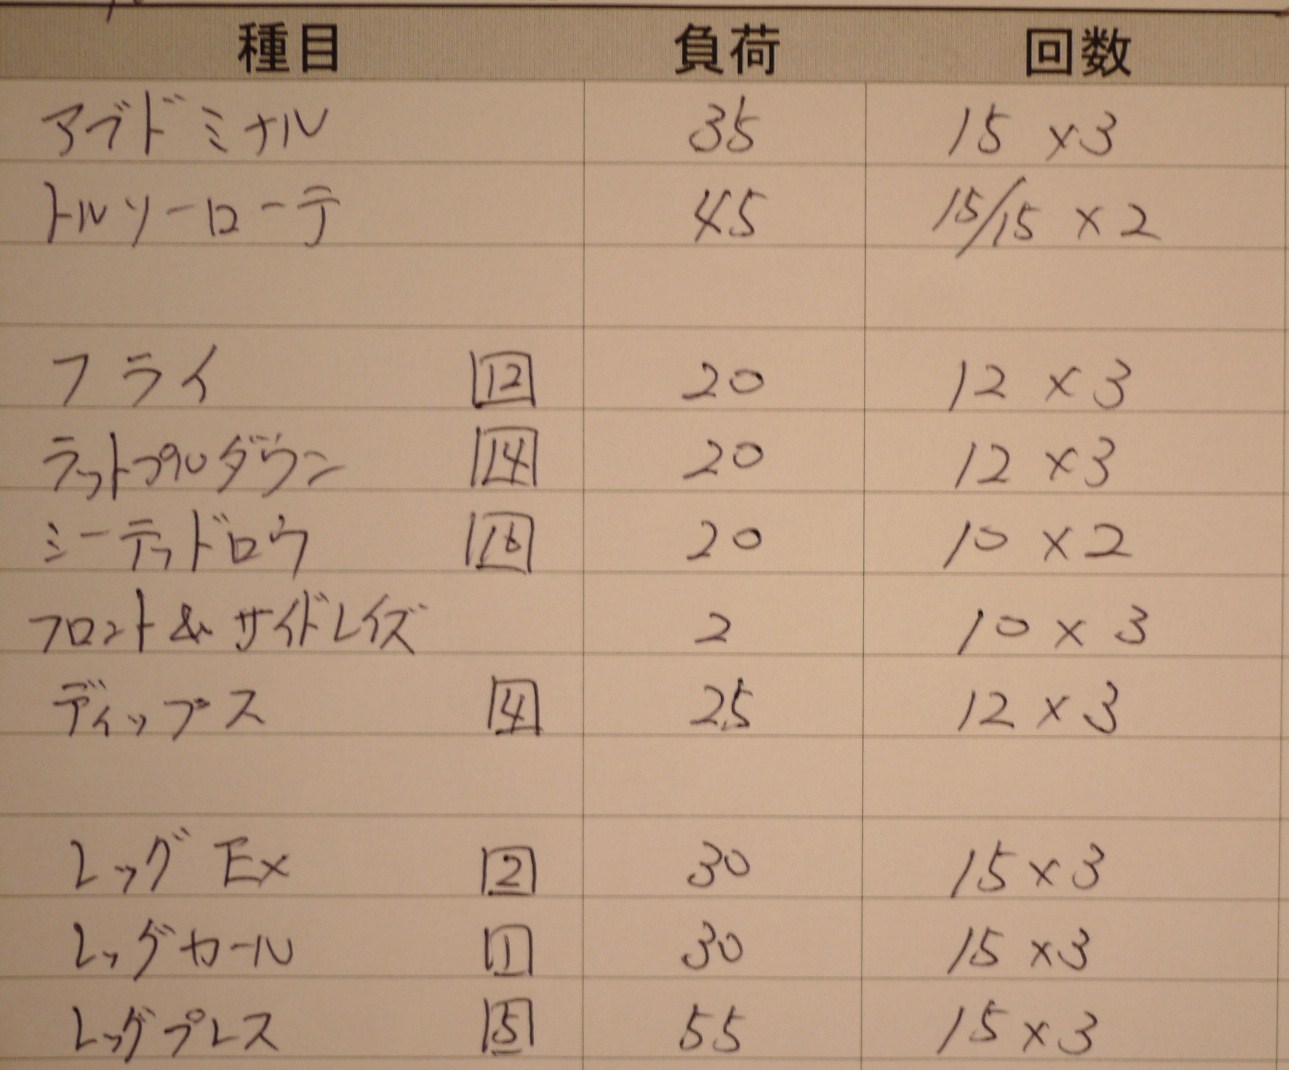 種目 負荷 回数
アブドミナル 35 15 ×3
トルソーローテ 45 15/15 ×2
フライ 12 20 12 ×3
ラットプルダウン 14 20 12 ×3
シーテッドロウ 16 20 10 ×2
フロント&サイドレイズ 2 10 × 3
ディップス 4 25 12 ×3
レッグEx 2 30 15×3
レッグカール 1 30 15 ×3
レッグプレス 5 55 15×3